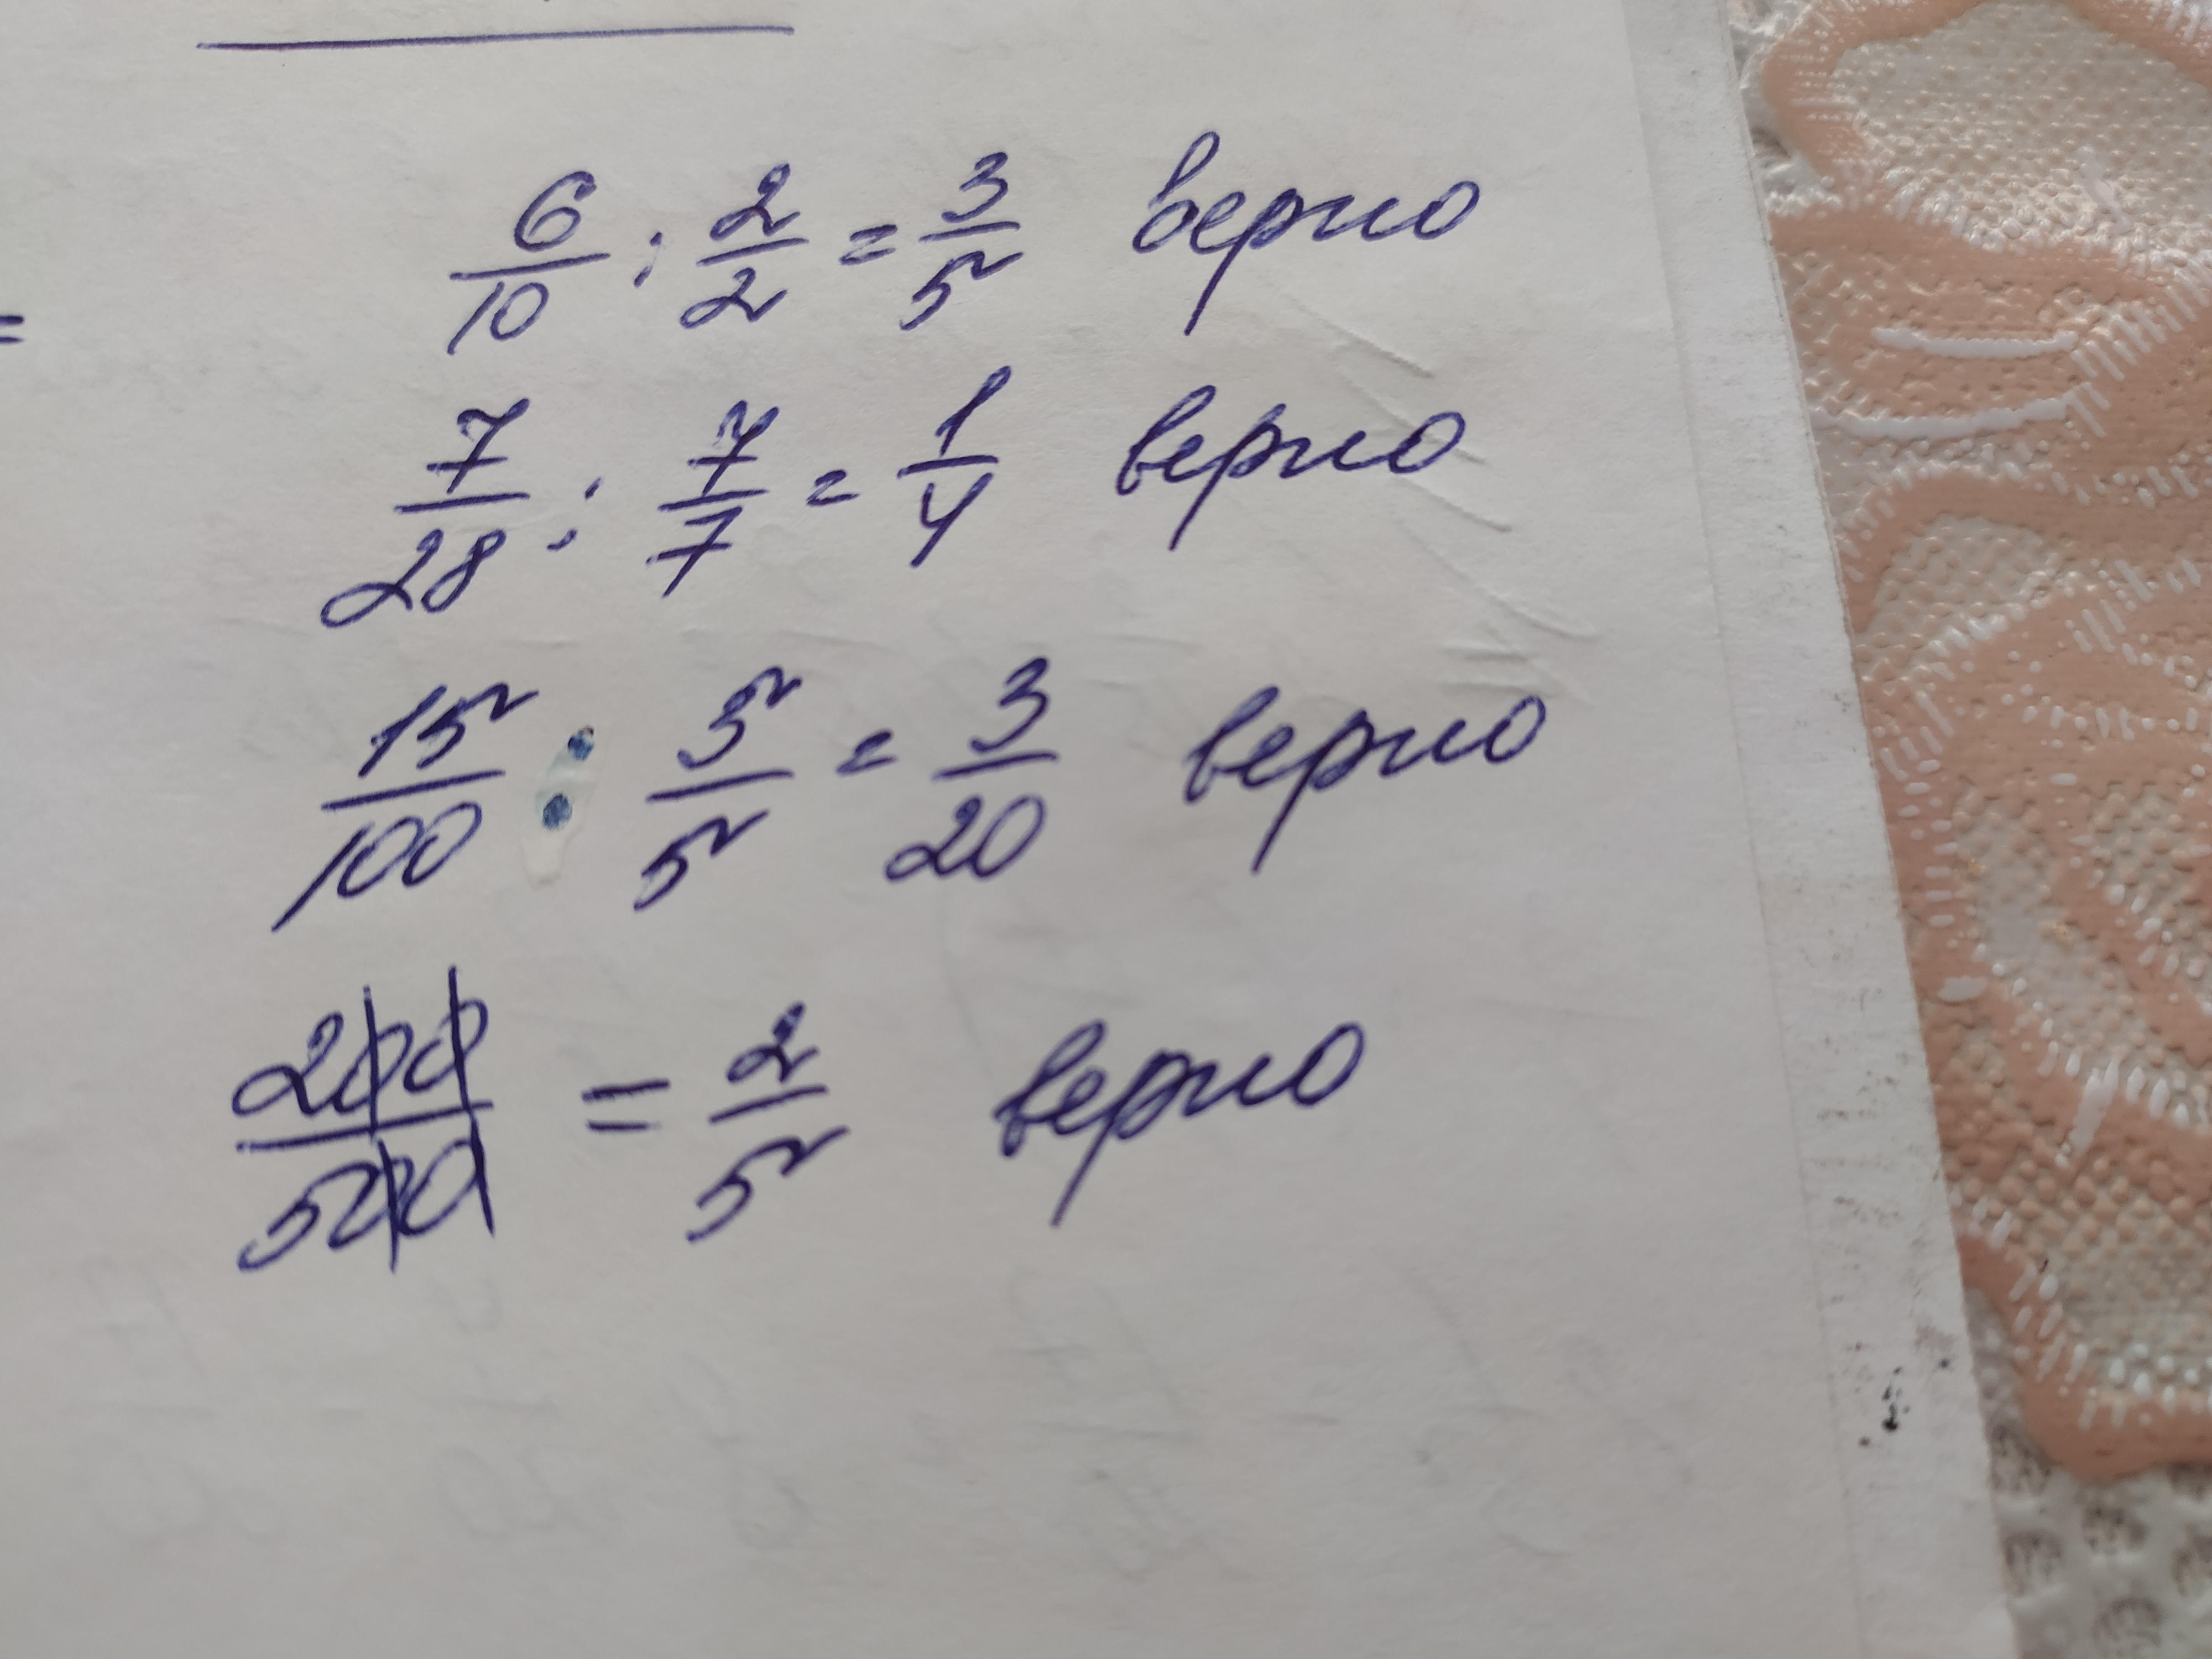 =
6/10 : 2/2 = 3/5 верно
7/28 : 7/7 = 1/4 верно
15/100 : 5/5 = 3/20 верно
200/500 = 2/5 верно